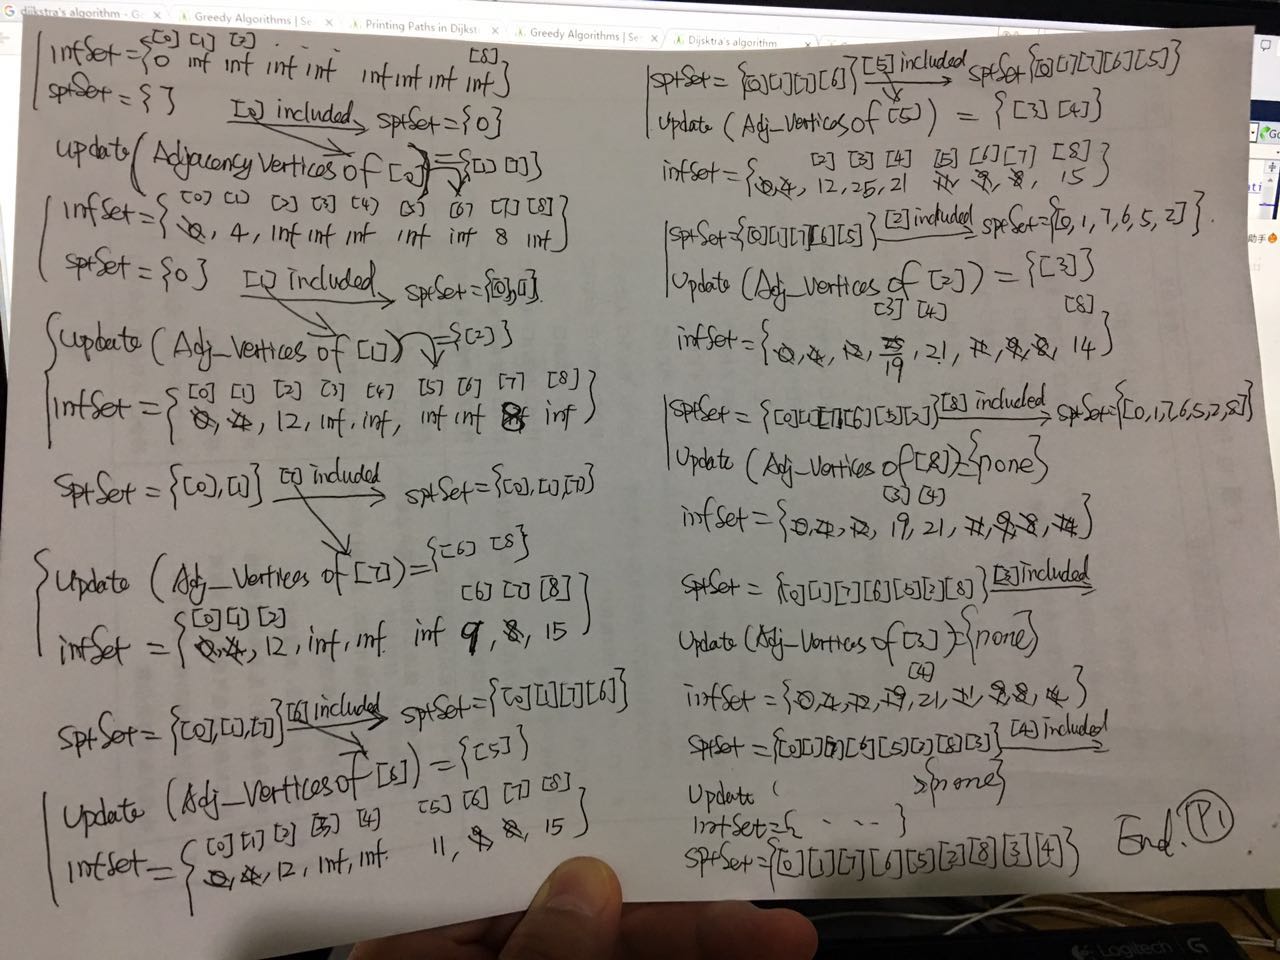 dijkstra's algorithm - G
Greedy Algorithms | Se
Printing Paths in Dijkst
Greedy Algorithms | Se
Dijsktra's algorithm
[0] [1] [2] . . . [8]
infSet={0 inf inf inf inf inf inf inf inf}
sptSet={}
[0] included sptSet={0}
update(Adjacency Vertices of [0])={[1] [7]}
[0] [1] [2] [3] [4] [5] [6] [7] [8]
infSet={0, 4, inf inf inf inf inf 8 inf}
sptSet={0} [1] included sptSet={[0],[1]}
update(Adj_Vertices of [1])={[2]}
[0] [1] [2] [3] [4] [5] [6] [7] [8]
infSet={0, 4, 12, inf, inf, inf inf 8 inf}
sptSet={[0],[1]} [7] included sptSet={[0],[1],[7]}
update (Adj_Vertices of [7])={[6] [8]}
[0] [1] [2] [6] [7] [8]
infSet={0, 4, 12, inf, inf. inf 9, 8, 15}
sptSet={[0],[1],[7]} [6] included sptSet={[0][1][7][6]}
Update (Adj_Vertices of [6])={[5]}
[0] [1] [2] [3] [4] [5] [6] [7] [8]
infSet={0, 4, 12, inf, inf. 11, 9, 8, 15}
sptSet={[0][1][7][6]} [5] included sptSet{[0][1][7][6][5]}
Update (Adj_Vertices of [5])={[3] [4]}
[2] [3] [4] [5] [6] [7] [8]
infSet={0, 4, 12, 25, 21 11, 9, 8, 15}
sptSet={[0][1][7][6][5]} [2] included sptSet={[0, 1, 7, 6, 5, 2]}.
Update (Adj_Vertices of [2])={[3]}
[3] [4] [8]
infSet={0, 4, 12, 25, 21, 11, 9, 8, 14}
19
sptSet={[0][1][7][6][5][2]} [8] included sptSet={[0,1,7,6,5,2,8]}
Update (Adj_Vertices of [8])={none}
[3] [4]
infSet={0, 4, 12, 19, 21, 11, 9, 8, 14}
sptSet={[0][1][7][6][5][2][8]} [3] included
Update (Adj_Vertices of [3])={none}
[4]
infSet={0, 4, 12, 19, 21, 11, 9, 8, 14}
sptSet={[0][1][7][6][5][2][8][3]} [4] included
Update ( >{none}
infSet={. . . . }
sptSet={[0][1][7][6][5][2][8][3][4]}
End. P1
Logitech G